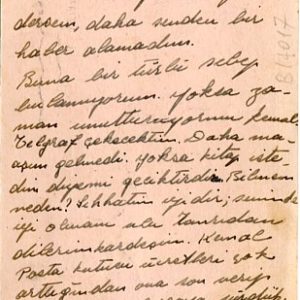 dersem, daha senden bir
haber alamadım.
Buna bir türlü sebep
bulamıyorum. Yoksa za-
man unutturuyormu Kemal.
Telgraf çekecektim. Daha ma-
aşım gelmedi. Yoksa kitap iste-
dim diyemi geciktirdin. Bilmem
neden? Sıhhatim iyidir, seninde
iyi olmanı ulu Tanrıdan
dilerim kardeşim. Kemal
Posta kutusu ücretleri çok
arttığından ona son verip
8/4017